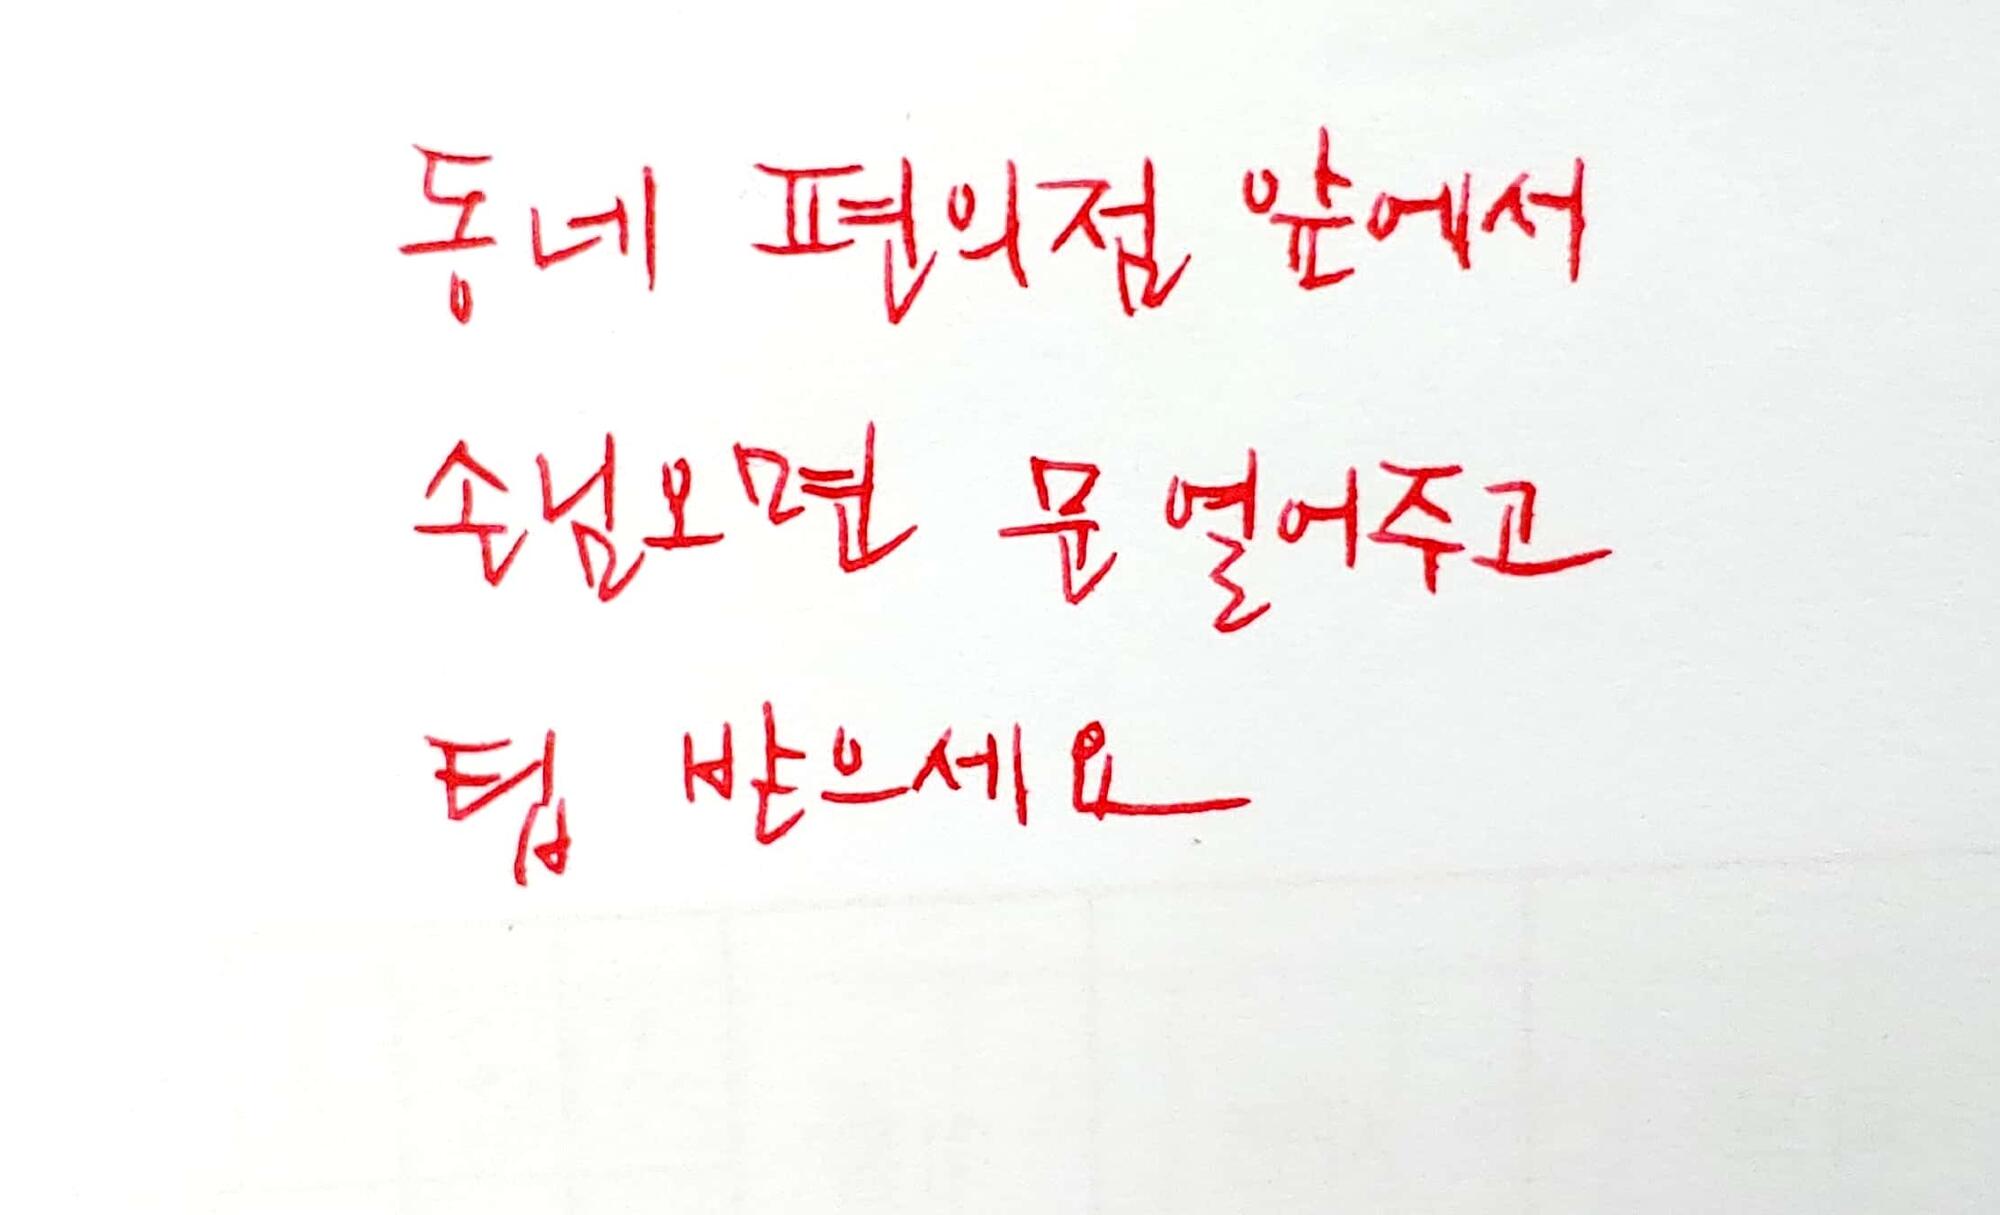 동네 편의점 앞에서
손님오면 문 열어주고
팁 받으세요